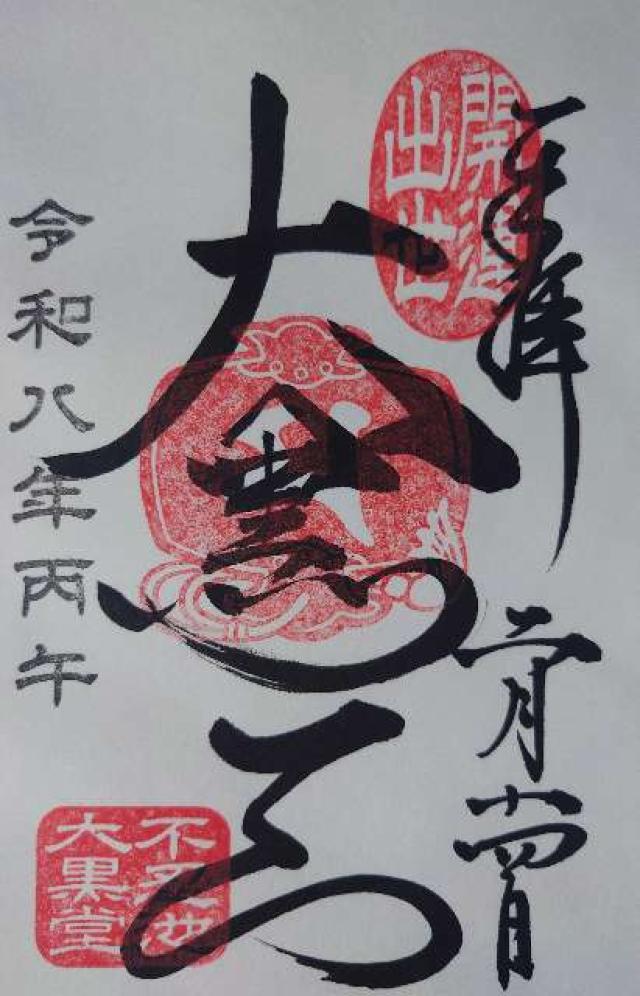 奉拝
開運
出世
大黒天
二月廿四日
令和八年丙午
不忍池
大黒堂